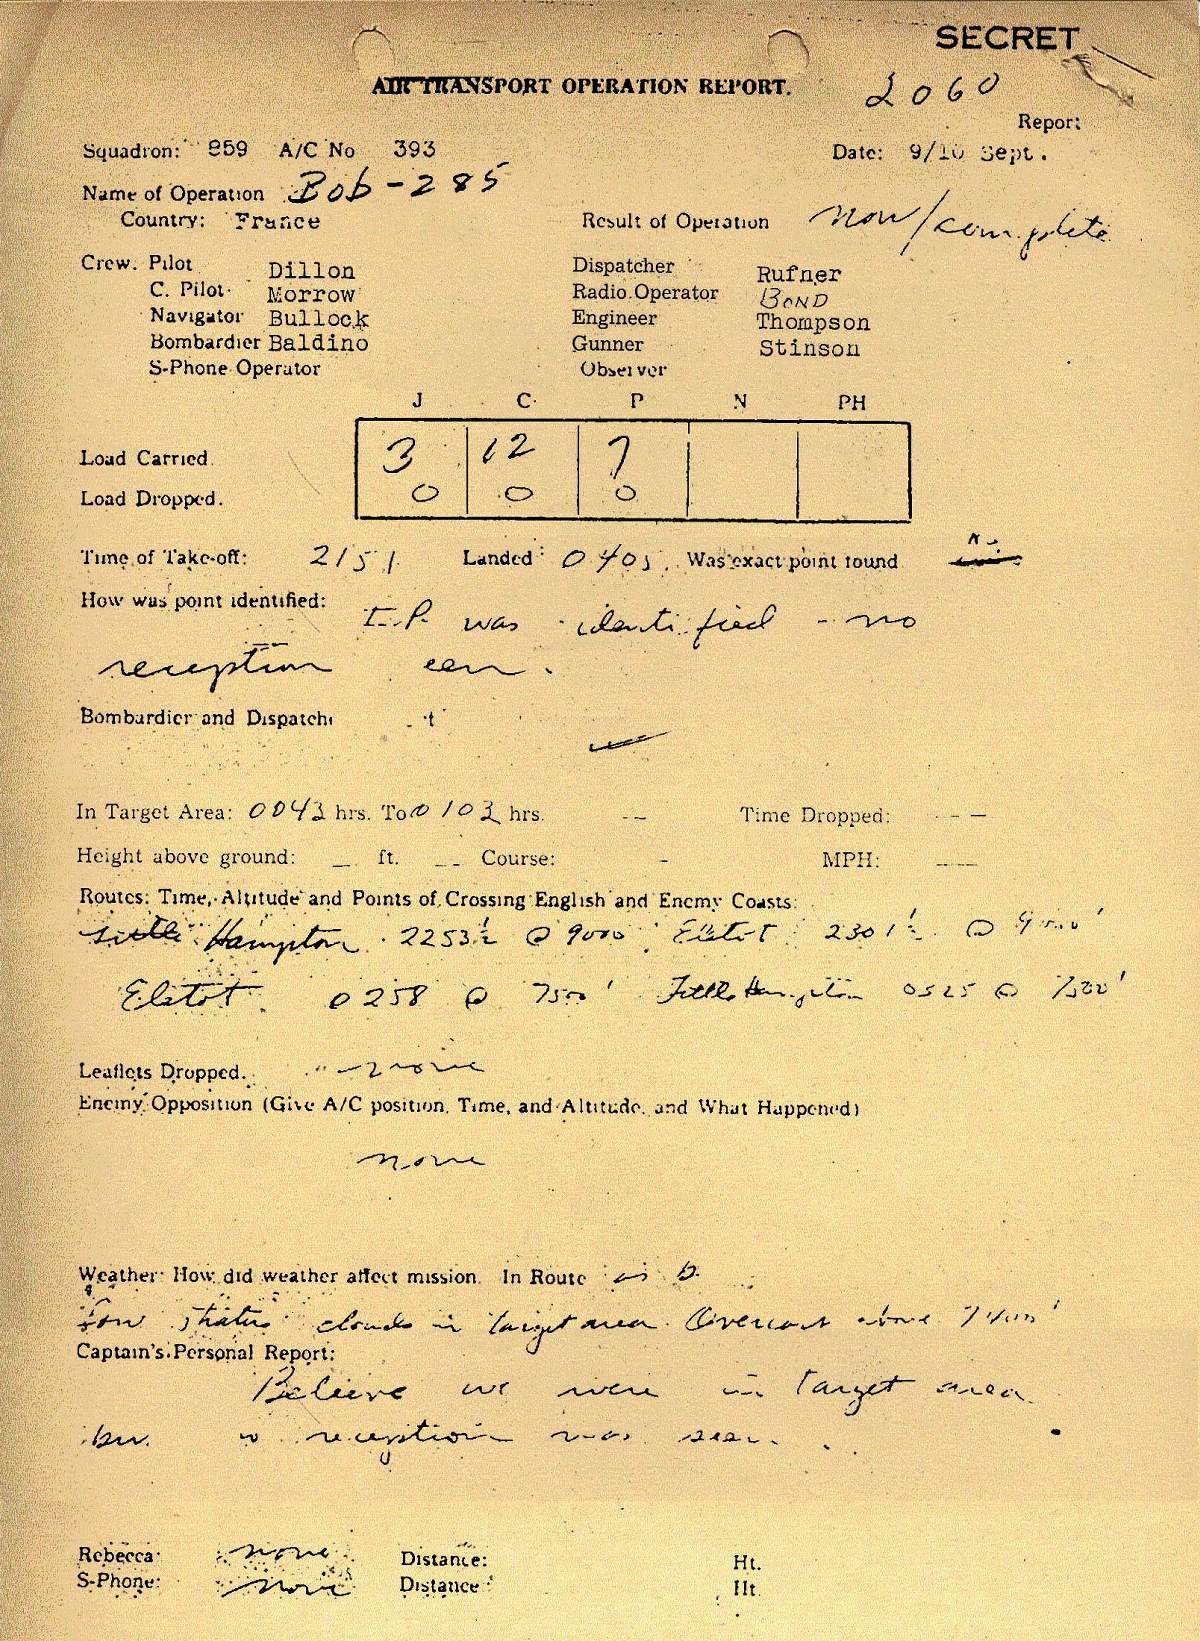 SECRET
AIR TRANSPORT OPERATION REPORT.
2060
Report
Squadron: 859 A/C No 393
Date: 9/10 Sept.
Name of Operation Bob-285
Country: France
Result of Operation non/complete
Crew. Pilot Dillon
Dispatcher Rufner
C. Pilot Morrow
Radio Operator BOND
Navigator Bullock
Engineer Thompson
Bombardier Baldino
Gunner Stinson
S-Phone Operator
Observer
J C P N PH
Load Carried. 3 12 7
Load Dropped. 0 0 0
Time of Take-off: 2151 Landed 0405. Was exact point found No
How was point identified: I.P. was identified - no
reception een.
Bombardier and Dispatch t
In Target Area: 0043 hrs. To 0103 hrs. -- Time Dropped: ---
Height above ground: — ft. -- Course: - MPH: —
Routes: Time, Altitude and Points of Crossing English and Enemy Coasts:
Little Hampton 2253½ @ 9000' Eletot 2301½ @ 9000'
Eletot 0258 @ 7500' Little Hampton 0325 @ 7500'
Leaflets Dropped. none
Enemy Opposition (Give A/C position, Time, and Altitude, and What Happened)
none
Weather: How did weather affect mission. In Route
Low stratus clouds in target area. Overcast above
Captain's Personal Report:
Believe we were in target area
reception was seen.
Rebecca: none Distance: Ht.
S-Phone: none Distance: Ht.